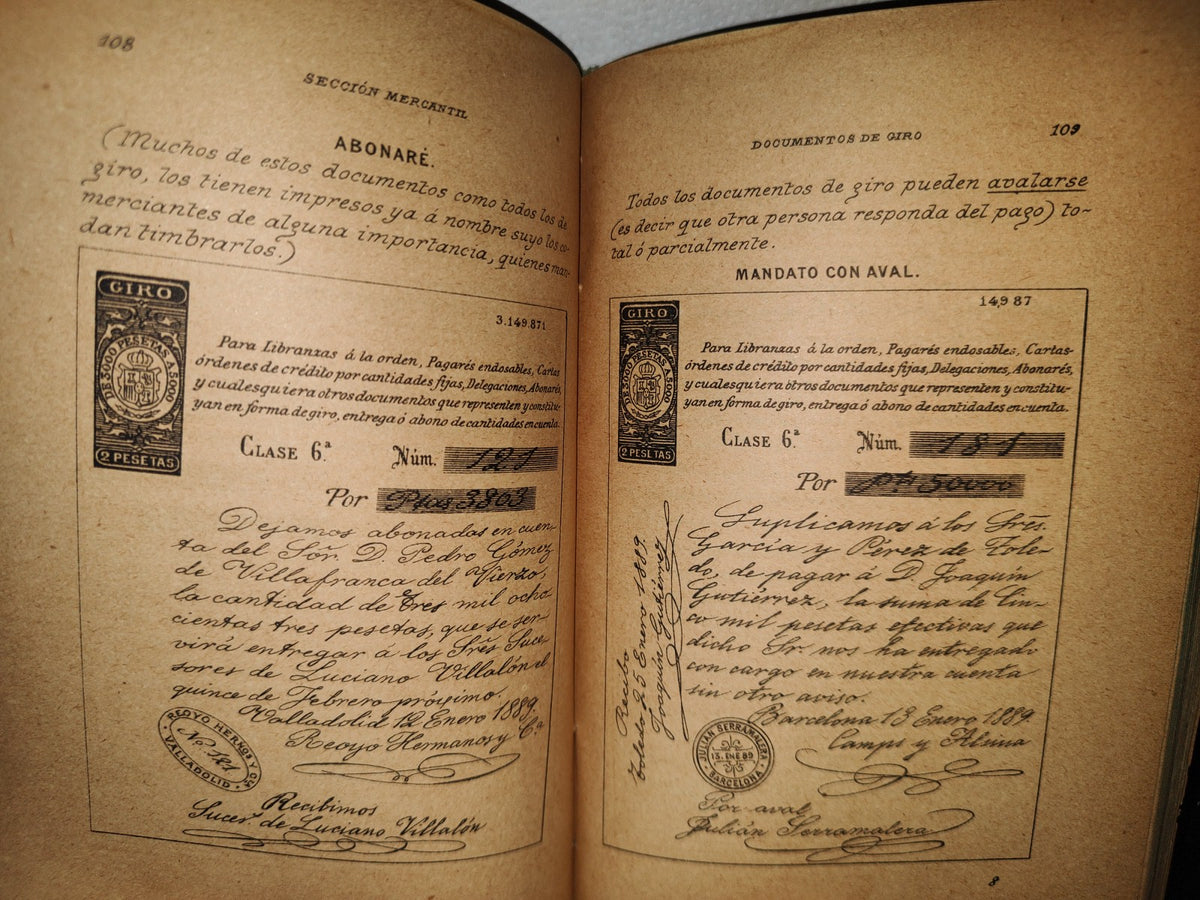 108
SECCIÓN MERCANTIL
ABONARÉ.
(Muchos de estos documentos como todos los de
giro, los tienen impresos ya á nombre suyo los co-
merciantes de alguna importancia, quienes man-
dan timbrarlos.)
GIRO
DE 3000 PESETAS A 5000
2 PESETAS
3.149.871
Para Libranzas á la orden, Pagarés endosables, Cartas
órdenes de crédito por cantidades fijas, Delegaciones, Abonarés,
y cualesquiera otros documentos que representen y constitu-
yan en forma de giro, entrega ó abono de cantidades en cuenta.
CLASE 6.ª Núm. 121
Por Ptas 3803
Dejamos abonadas en cuen-
ta del Sõr. D. Pedro Gómez
de Villafranca del Vierzo,
la cantidad de tres mil ocho
cientas tres pesetas, que se ser-
virá entregar á los Srẽs Suce-
sores de Luciano Villalón el
quince de Febrero próximo.
Valladolid 12 Enero 1889.
Reoyo Hermanos y Cª
REOYO HERMOS Y Cª
No. 121
VALLADOLID
Recibimos
Suceṛ de Luciano Villalón
DOCUMENTOS DE GIRO
109
Todos los documentos de giro pueden avalarse
(es decir que otra persona responda del pago) to-
tal ó parcialmente.
MANDATO CON AVAL.
GIRO
DE 3000 PESETAS A 5000
2 PESETAS
14,987
Para Libranzas á la orden, Pagarés endosables, Cartas-
órdenes de crédito por cantidades fijas, Delegaciones, Abonarés,
y cualesquiera otros documentos que representen y constitu-
yan en forma de giro, entrega ó abono de cantidades en cuenta.
CLASE 6.ª Núm. 181
Por Pts 50000
Suplicamos á los Srẽs.
García y Pérez de Tole-
do, de pagar á D. Joaquín
Gutiérrez, la suma de Cin-
co mil pesetas efectivas que
dicho Sr. nos ha entregado
con cargo en nuestra cuenta
sin otro aviso.
Barcelona 13 Enero 1889
Camps y Alsina
Recibo
Toledo 25 Enero 1889.
Joaquín Gutiérrez
JULIAN SERRAMALERA
13. ENE 89
BARCELONA
Por aval
Julián Serramalera
8